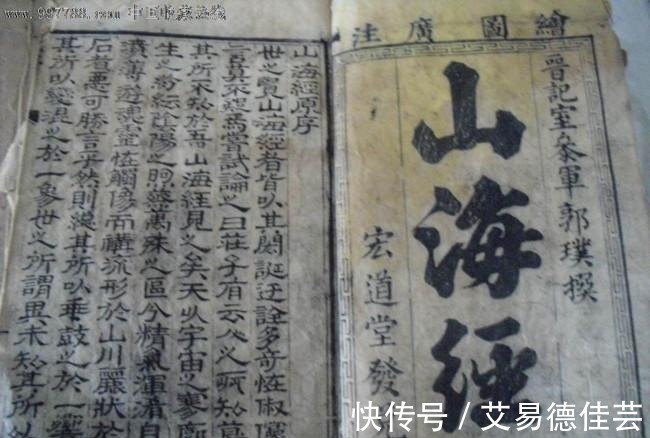 www.997788.com 中国收藏热线
繪圖廣注
晉記室叅軍郭璞撰
山海經
宏道堂發
山海經原序
世之覽山海經者皆以其閎誕迂誇多奇怪俶儻
言莫不疑焉嘗試論之曰莊子有云人之所知莫
其所不知於吾山海經見之矣夫以宇宙之寥廓
生之紛紜陰陽之煦蒸萬殊之區分精氣渾自
濆薄遊魂靈怪觸像而構流形於山川麗狀於
石者惡可勝言乎然則總其所以乖鼓之於一
其所以變混之於一象世之所謂異未知其所以
快传号 / 艾易德佳芸